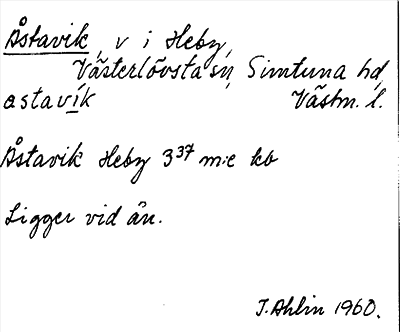 Åstavik, v i Heby,
Västerlövsta sn, Simtuna hd,
astavik Västm. l.
Åstavik Heby 3³⁷ m:e kb
Ligger vid ån.
J. Ahlin 1960.